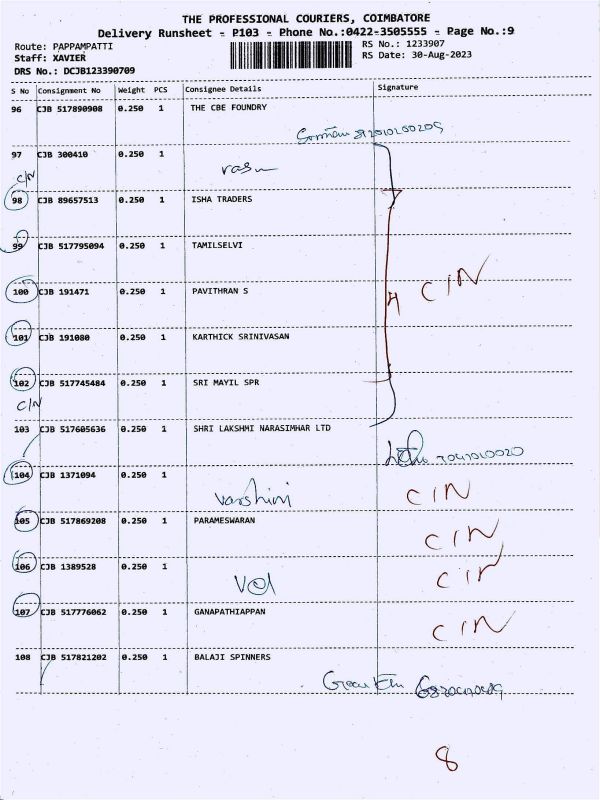 THE PROFESSIONAL COURIERS, COIMBATORE
Delivery Runsheet - P103 - Phone No.:0422-3505555 - Page No.:9
Route: PAPPAMPATTI RS No.: 1233907
Staff: XAVIER RS Date: 30-Aug-2023
DRS No.: DCJB123390709
S No Consignment No Weight PCS Consignee Details Signature
96 CJB 517890908 0.250 1 THE CBE FOUNDRY
97 CJB 300410 0.250 1
vasu
C/N
98 CJB 89657513 0.250 1 ISHA TRADERS
99 CJB 517795094 0.250 1 TAMILSELVI
100 CJB 191471 0.250 1 PAVITHRAN S
C/N
101 CJB 191080 0.250 1 KARTHICK SRINIVASAN
102 CJB 517745484 0.250 1 SRI MAYIL SPR
C/N
103 CJB 517605636 0.250 1 SHRI LAKSHMI NARASIMHAR LTD
104 CJB 1371094 0.250 1
varshini C/N
105 CJB 517869208 0.250 1 PARAMESWARAN
C/N
106 CJB 1389528 0.250 1
Vel C/N
107 CJB 517776062 0.250 1 GANAPATHIAPPAN
C/N
108 CJB 517821202 0.250 1 BALAJI SPINNERS
8